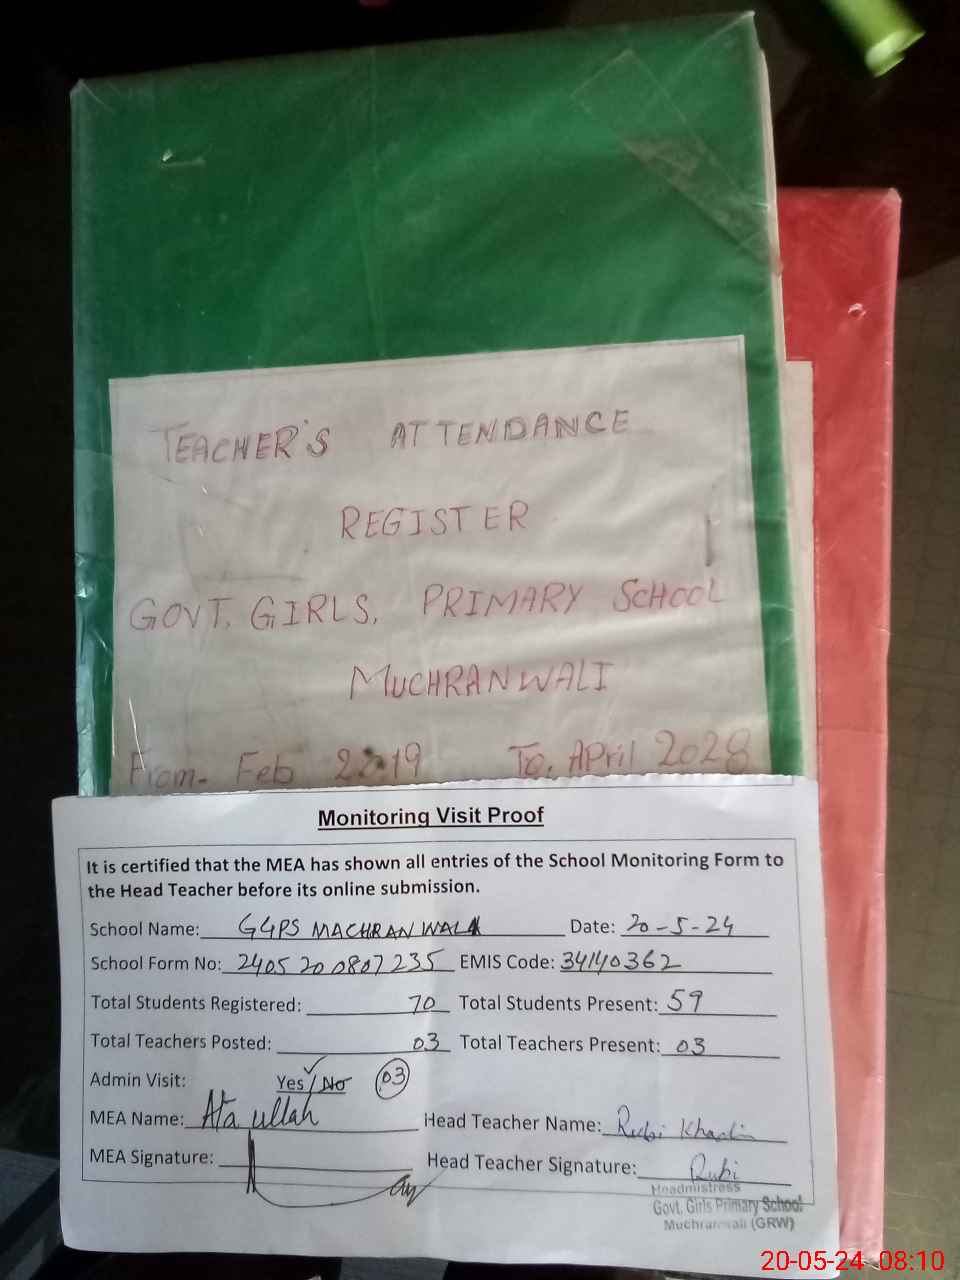 TEACHER'S ATTENDANCE
REGISTER
GOVT. GIRLS, PRIMARY SCHOOL
MUCHRANWALI
From- Feb 2019 To, APril 2028
Monitoring Visit Proof
It is certified that the MEA has shown all entries of the School Monitoring Form to
the Head Teacher before its online submission.
School Name: GGPS MACHRANWALI Date: 20-5-24
School Form No: 2405200807235 EMIS Code: 34140362
Total Students Registered: 70 Total Students Present: 59
Total Teachers Posted: 03 Total Teachers Present: 03
Admin Visit: Yes/No 03
MEA Name: Ata ullah Head Teacher Name: Rubi
MEA Signature: Head Teacher Signature: Rubi
Headmistress
Govt. Girls Primary School
Muchranwali (GRW)
20-05-24 08:10